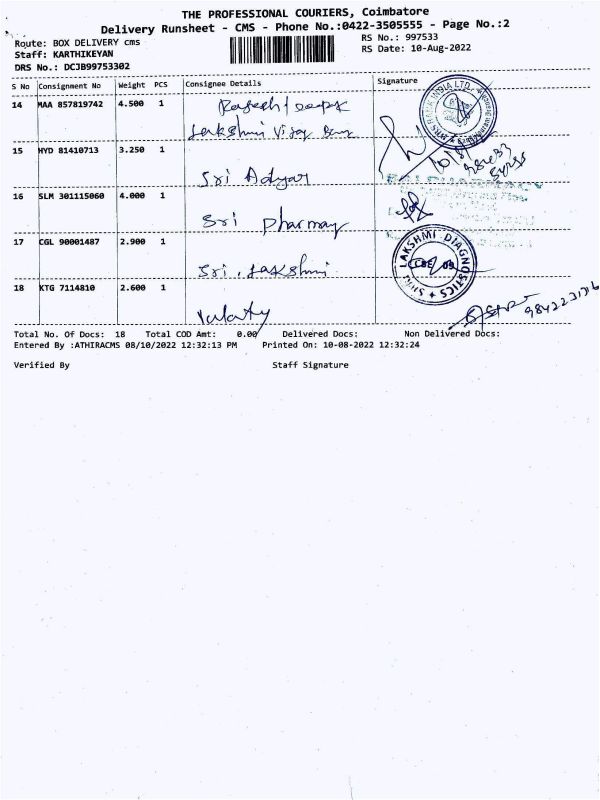 THE PROFESSIONAL COURIERS, Coimbatore
Delivery Runsheet - CMS - Phone No.:0422-3505555 - Page No.:2
Route: BOX DELIVERY cms
RS No.: 997533
Staff: KARTHIKEYAN
RS Date: 10-Aug-2022
DRS No.: DCJB99753302
S No Consignment No Weight PCS Consignee Details Signature
14 MAA 857819742 4.500 1
Lakshmi Vijay
15 HYD 81410713 3.250 1
Sri Adyar
16 SLM 301115060 4.000 1
Sri pharmay
17 CGL 90001487 2.900 1
Sri. Lakshmi
LAKSHMI DIAGNOSTICS
18 KTG 7114810 2.600 1
Total No. Of Docs: 18 Total COD Amt: 0.00 Delivered Docs: Non Delivered Docs:
Entered By :ATHIRACMS 08/10/2022 12:32:13 PM Printed On: 10-08-2022 12:32:24
Verified By Staff Signature